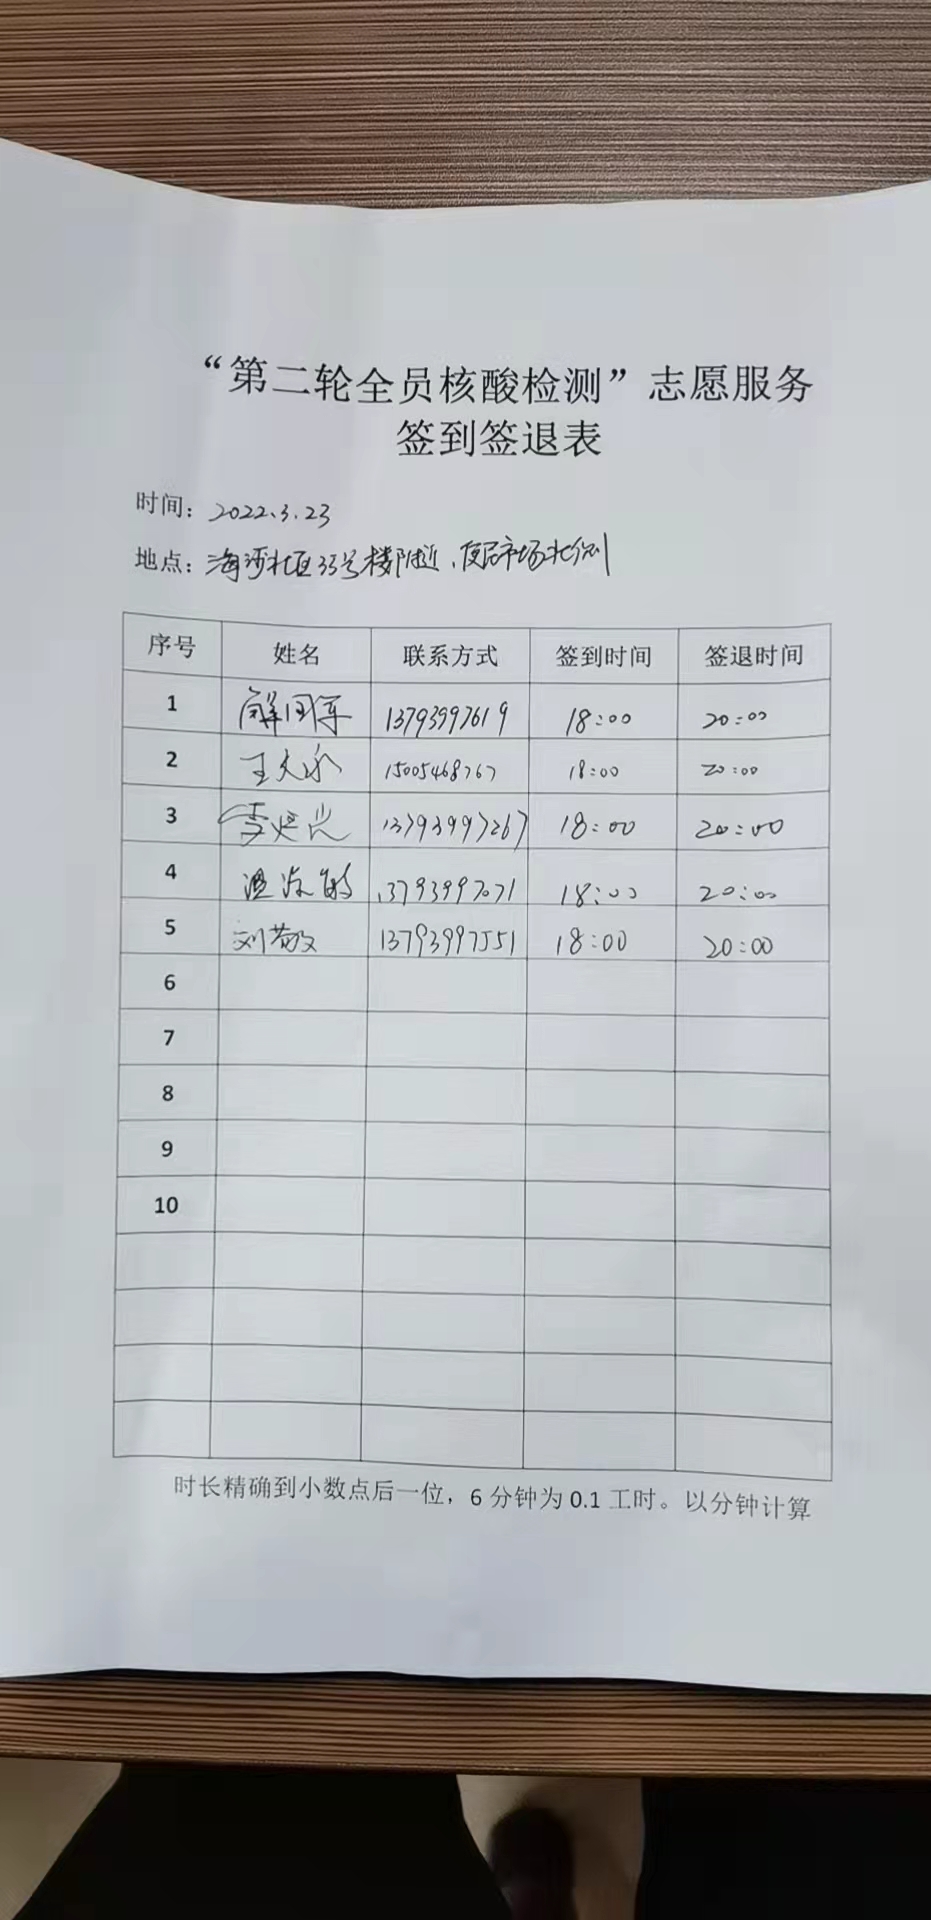 “第二轮全员核酸检测”志愿服务
签到签退表
时间：2022.3.23
地点：海河社区33号楼附近、便民市场北侧
序号 姓名 联系方式 签到时间 签退时间
1 解国军 13793997619 18:00 20:00
2 王文永 15005468767 18:00 20:00
3 李 13793997267 18:00 20:00
4 温 13793997071 18:00 20:00
5 刘敬 13793997551 18:00 20:00
6
7
8
9
10
时长精确到小数点后一位，6分钟为0.1工时。以分钟计算